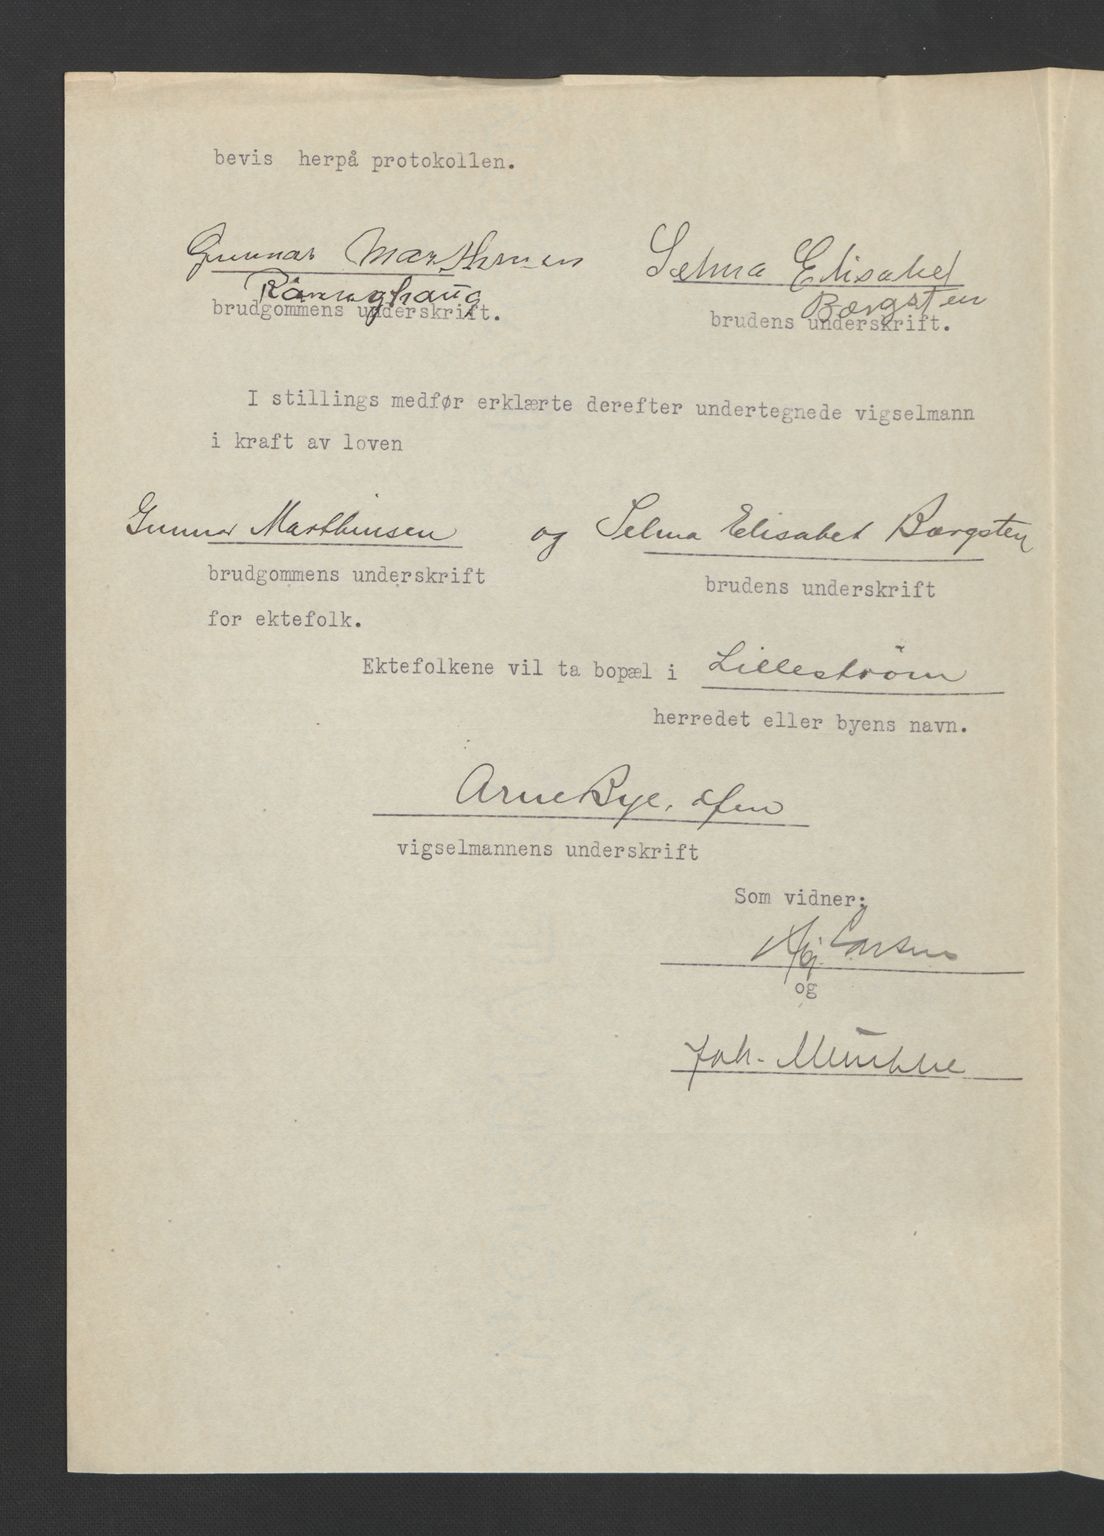 bevis herpå protokollen.
Gunnar Marthinsen Selma Elisabet
Bærgsten
brudgommens underskrift.
brudens underskrift.
I stillings medfør erklærte derefter undertegnede vigselmann
i kraft av loven
Gunnar Marthinsen og Selma Elisabet Bærgsten
brudgommens underskrift brudens underskrift
for ektefolk.
Ektefolkene vil ta bopæl i Lillestrøm
herredet eller byens navn.
Arne Bye,
vigselmannens underskrift
Som vidner:
Larsen
og
Joh.